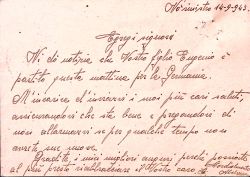 14-9-943.
Egregi signori
Vi dò notizia che Vostro figlio Eugenio è
partito questa mattina per la Germania.
M'incarica d'inviarvi i suoi più cari saluti,
assicurandovi che sta bene e pregandovi di
non allarmarvi se per qualche tempo non
avrete sue nuove.
Gradite i miei migliori auguri perchè possiate
al più presto riabbracciare il Vostro caro